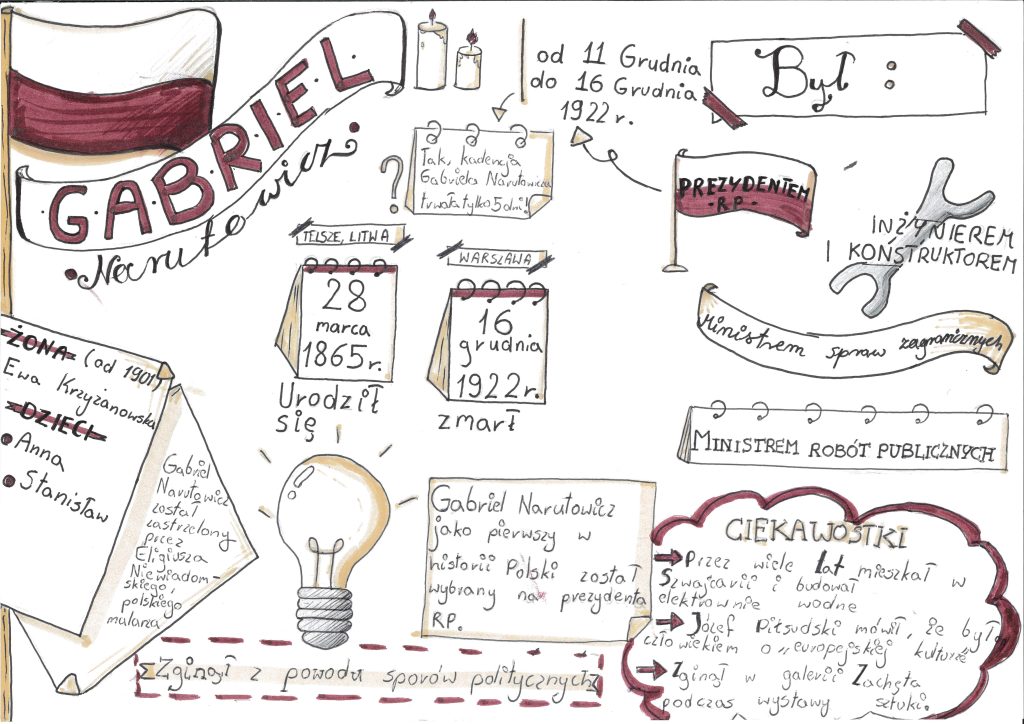 GABRIEL
Narutowicz
od 11 Grudnia
do 16 Grudnia
1922 r.
Był :
?
Tak, kadencja
Gabriela Narutowicza
trwała tylko 5 dni!
PREZYDENTEM
-RP-
INŻYNIEREM
I KONSTRUKTOREM
TELSZE, LITWA
28
marca
1865 r.
Urodził
się
WARSZAWA
16
grudnia
1922 r.
zmarł
Ministrem spraw zagranicznych
MINISTREM ROBÓT PUBLICZNYCH
ŻONA (od 1901)
Ewa Krzyżanowska
DZIECI
• Anna
• Stanisław
Gabriel
Narutowicz
został
zastrzelony
przez
Eligiusza
Niewiadom-
skiego,
polskiego
malarza
Gabriel Narutowicz
jako pierwszy w
historii Polski został
wybrany na prezydenta
RP.
Zginął z powodu sporów politycznych
CIEKAWOSTKI
Przez wiele lat mieszkał w
Szwajcarii i budował
elektrownie wodne
Józef Piłsudski mówił, że był
człowiekiem o „europejskiej kulturze
Zginął w galerii Zachęta
podczas wystawy sztuki.